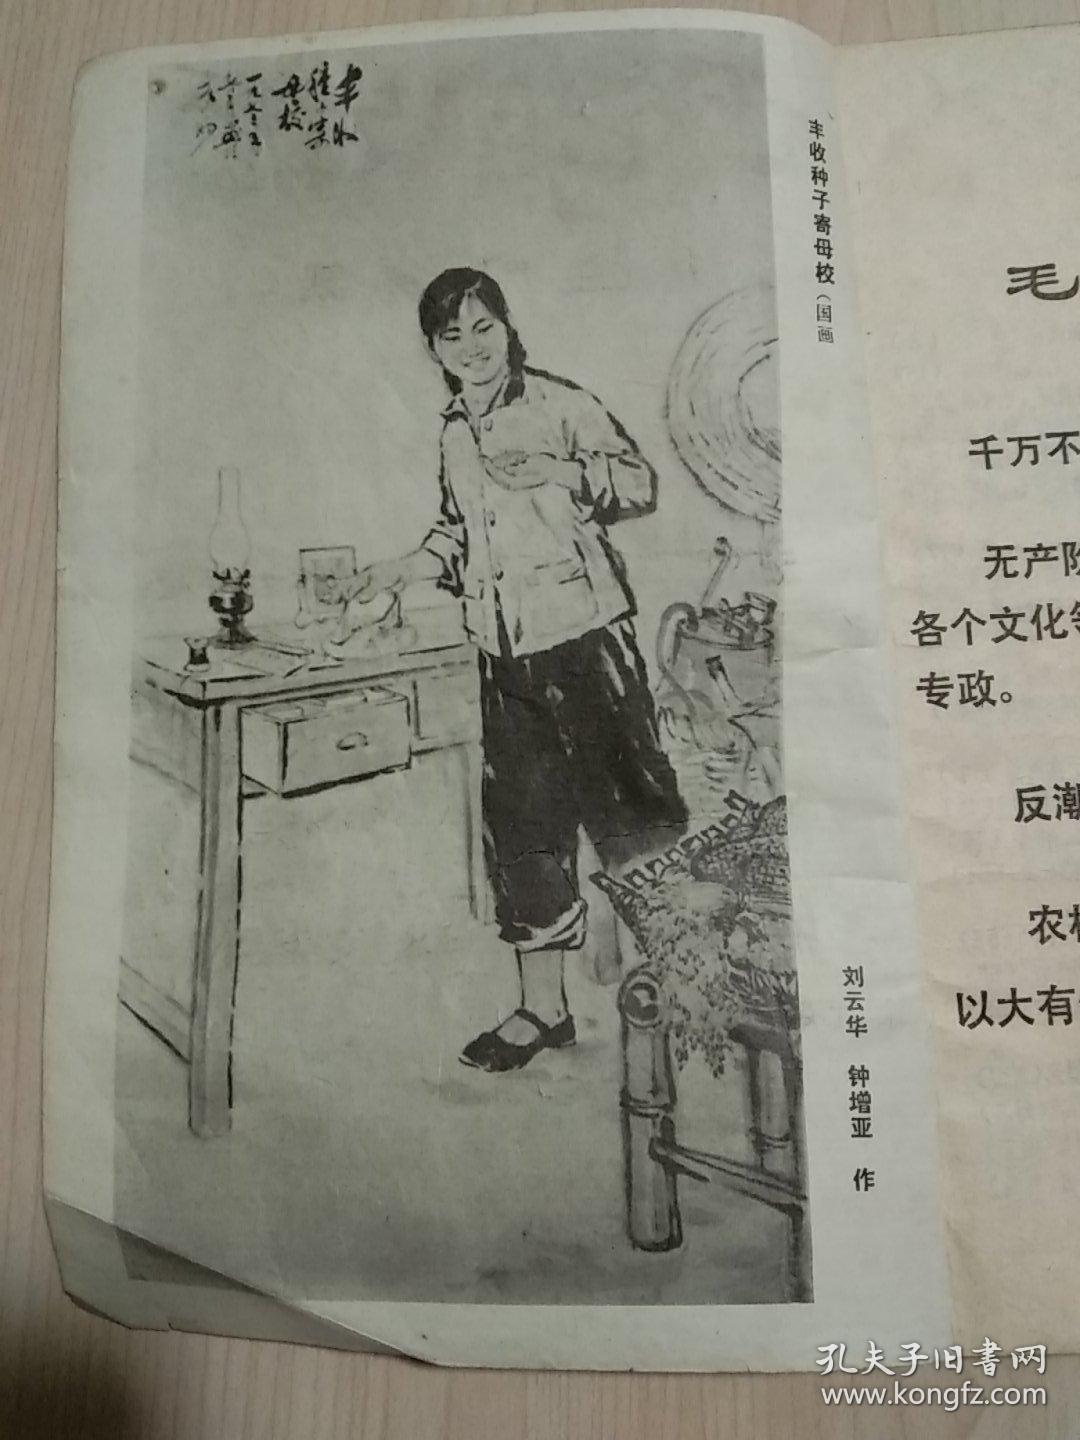 丰收
种子寄
母校
一九七三年
丰收种子寄母校（国画
刘云华 钟增亚 作
毛
千万不
无产阶
各个文化
专政。
反潮
农村
以大有
孔夫子旧書网
www.kongfz.com